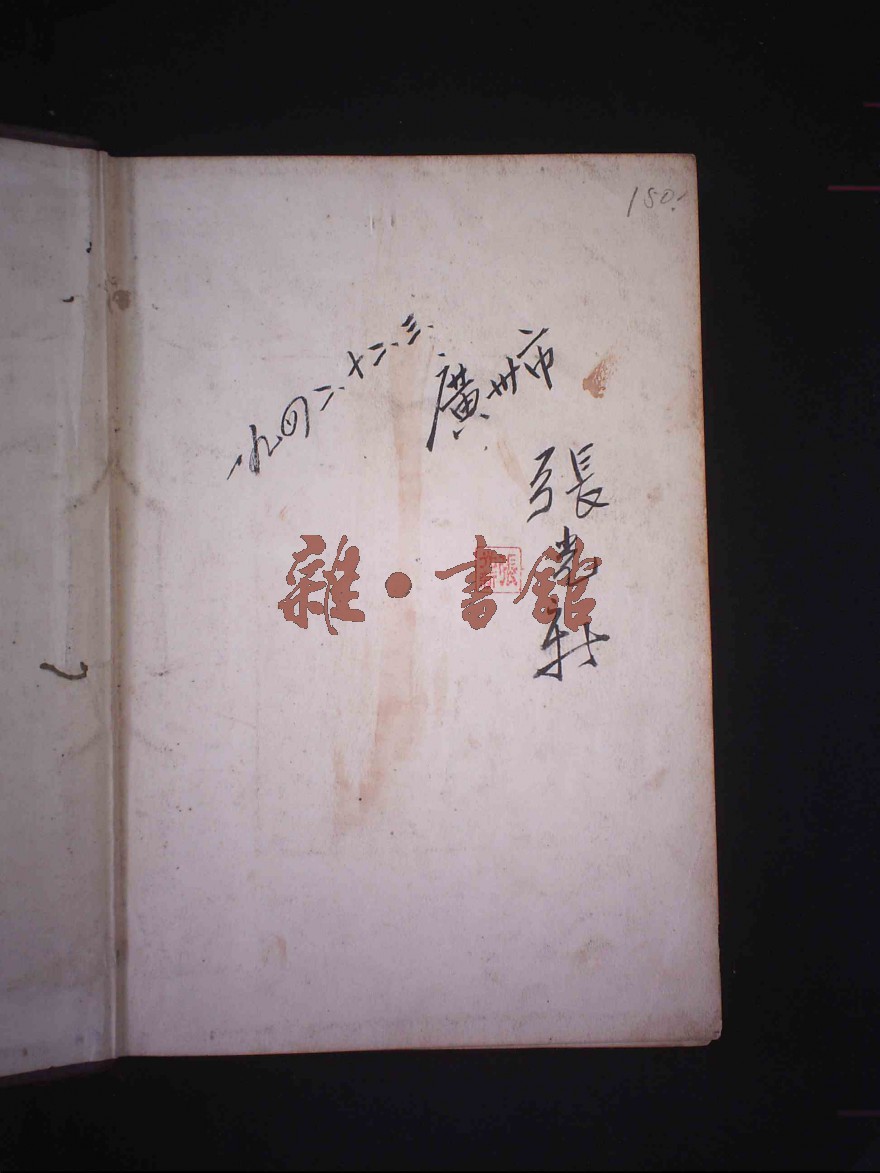 150.
一九四二、十二、三.
廣州市
張
雜·書館
張